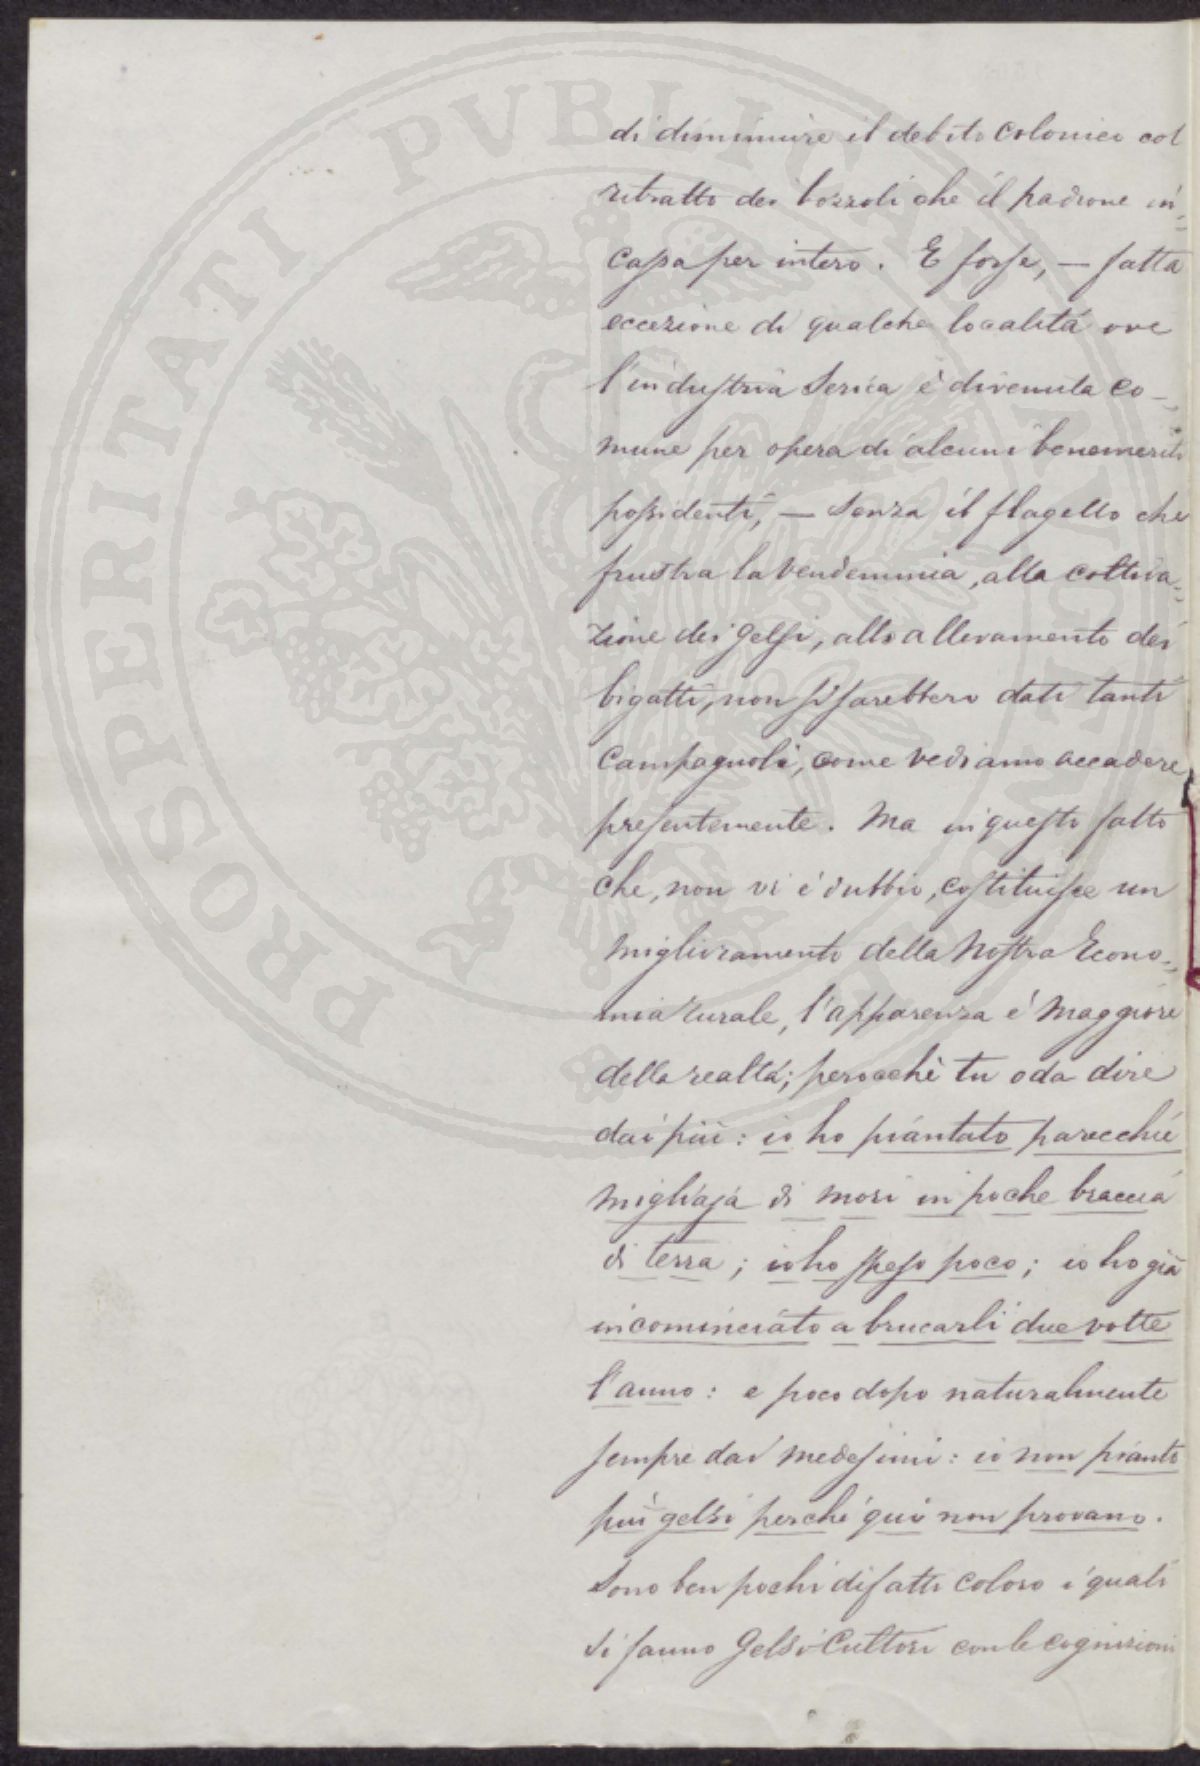 PROSPERITATI PVBLICAE AVGENDAE
di diminuire il debito Colonico col
ritratto dei bozzoli che il padrone in=
cassa per intero. E forse, — fatta
eccezione di qualche località ove
l'industria Serica è divenuta co=
mune per opera di alcuni benemeriti
possidenti, — senza il flagello che
frustra la vendemmia, alla coltiva=
zione dei gelsi, allo allevamento dei
bigatti, non si sarebbero dati tanti
Campagnoli, come vediamo accadere
presentemente. Ma in questo fatto
che, non vi è dubbio, costituisce un
miglioramento della Nostra Econo=
mia rurale, l'apparenza è Maggiore
della realtà; perocchè tu oda dire
dai più: io ho piantato parecchie
migliaja di mori in poche braccia
di terra; io ho speso poco; io ho già
incominciato a brucarli due volte
l'anno: e poco dopo naturalmente
sempre dai medesimi: io non pianto
più gelsi perchè qui non provano.
Sono ben pochi difatti coloro i quali
si fanno Gelsi-Cultori con le cognizioni